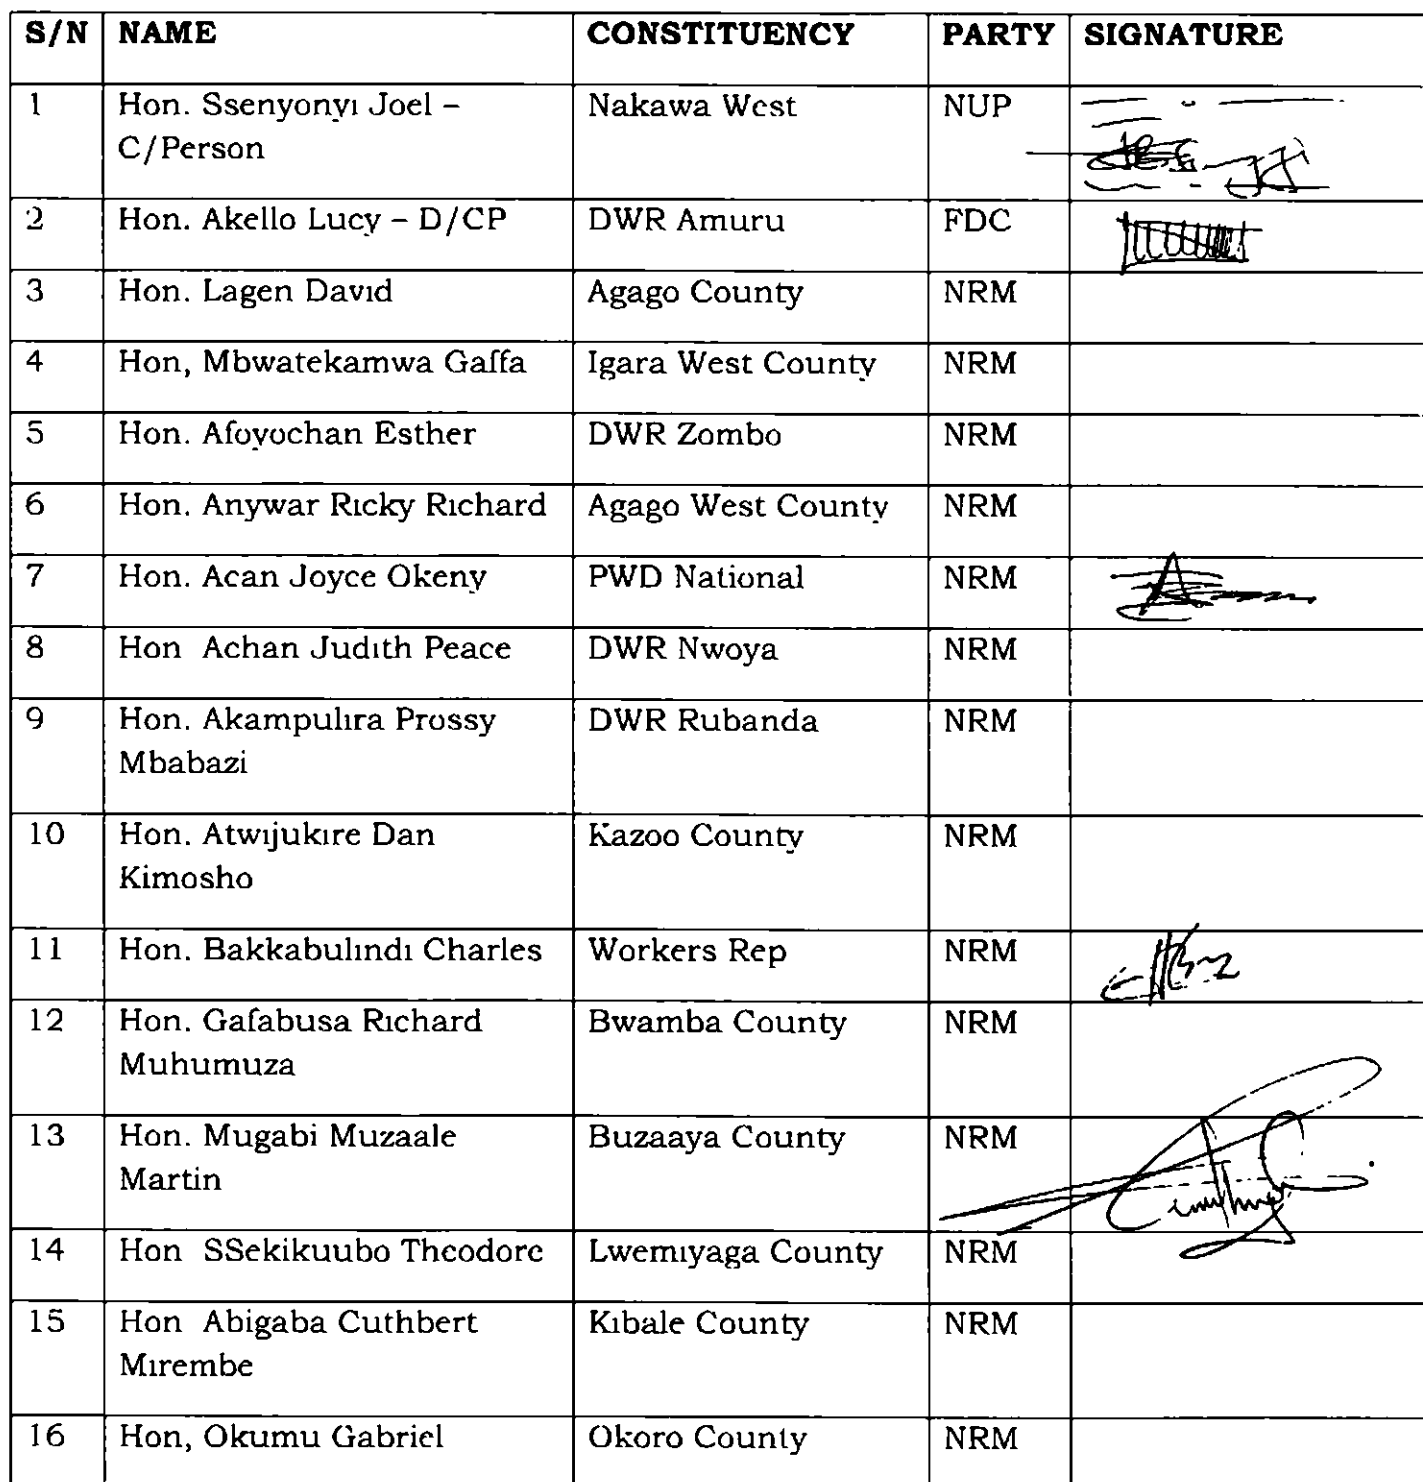 S/N NAME CONSTITUENCY PARTY SIGNATURE
1 Hon. Ssenyonyi Joel – Nakawa West NUP
C/Person
2 Hon. Akello Lucy – D/CP DWR Amuru FDC
3 Hon. Lagen David Agago County NRM
4 Hon, Mbwatekamwa Gaffa Igara West County NRM
5 Hon. Afoyochan Esther DWR Zombo NRM
6 Hon. Anywar Ricky Richard Agago West County NRM
7 Hon. Acan Joyce Okeny PWD National NRM
8 Hon Achan Judith Peace DWR Nwoya NRM
9 Hon. Akampulira Prossy DWR Rubanda NRM
Mbabazi
10 Hon. Atwijukire Dan Kazoo County NRM
Kimosho
11 Hon. Bakkabulindi Charles Workers Rep NRM
12 Hon. Gafabusa Richard Bwamba County NRM
Muhumuza
13 Hon. Mugabi Muzaale Buzaaya County NRM
Martin
14 Hon SSekikuubo Theodore Lwemiyaga County NRM
15 Hon Abigaba Cuthbert Kibale County NRM
Mirembe
16 Hon, Okumu Gabriel Okoro County NRM